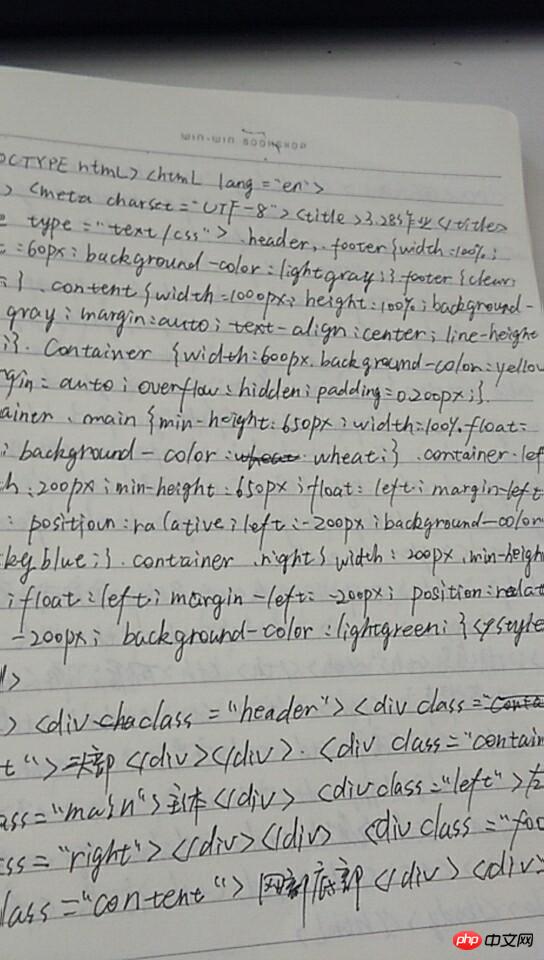 WIN-WIN BOOKSHOP
OCTYPE html> <html lang="en">
> <meta charset="UTF-8"> <title>3.28作业</title>
e type="text/css"> .header,.footer{width:100%;
:60px;background-color:lightgray;}.footer{clear:
;}.content{width=1000px;height:100%;background-
gray;margin:auto;text-align:center;line-height
;}.Container {width:600px.background-color:yellow
rgin:auto;overflow:hidden;padding:0.200px;}.
ainer.main{min-height:650px;width:100%.float:
;background-color:wheat;}.container.lef
h:200px;min-height:650px;float:left;margin-left
:position:ralative;left:-200px;background-color
kyblue;}.container.right{width:200px.min-heigh
;float:left;margin-left:-200px;position:relat
-200px;background-color:lightgreen;}</style
>
> <div class="header"> <div class="
t">头部</div></div>.<div class="contain
ass="main">主体</div> <div class="left">左
ss="right"></div></div> <div class="foo
lass="content">底部</div><div>
php 中文网